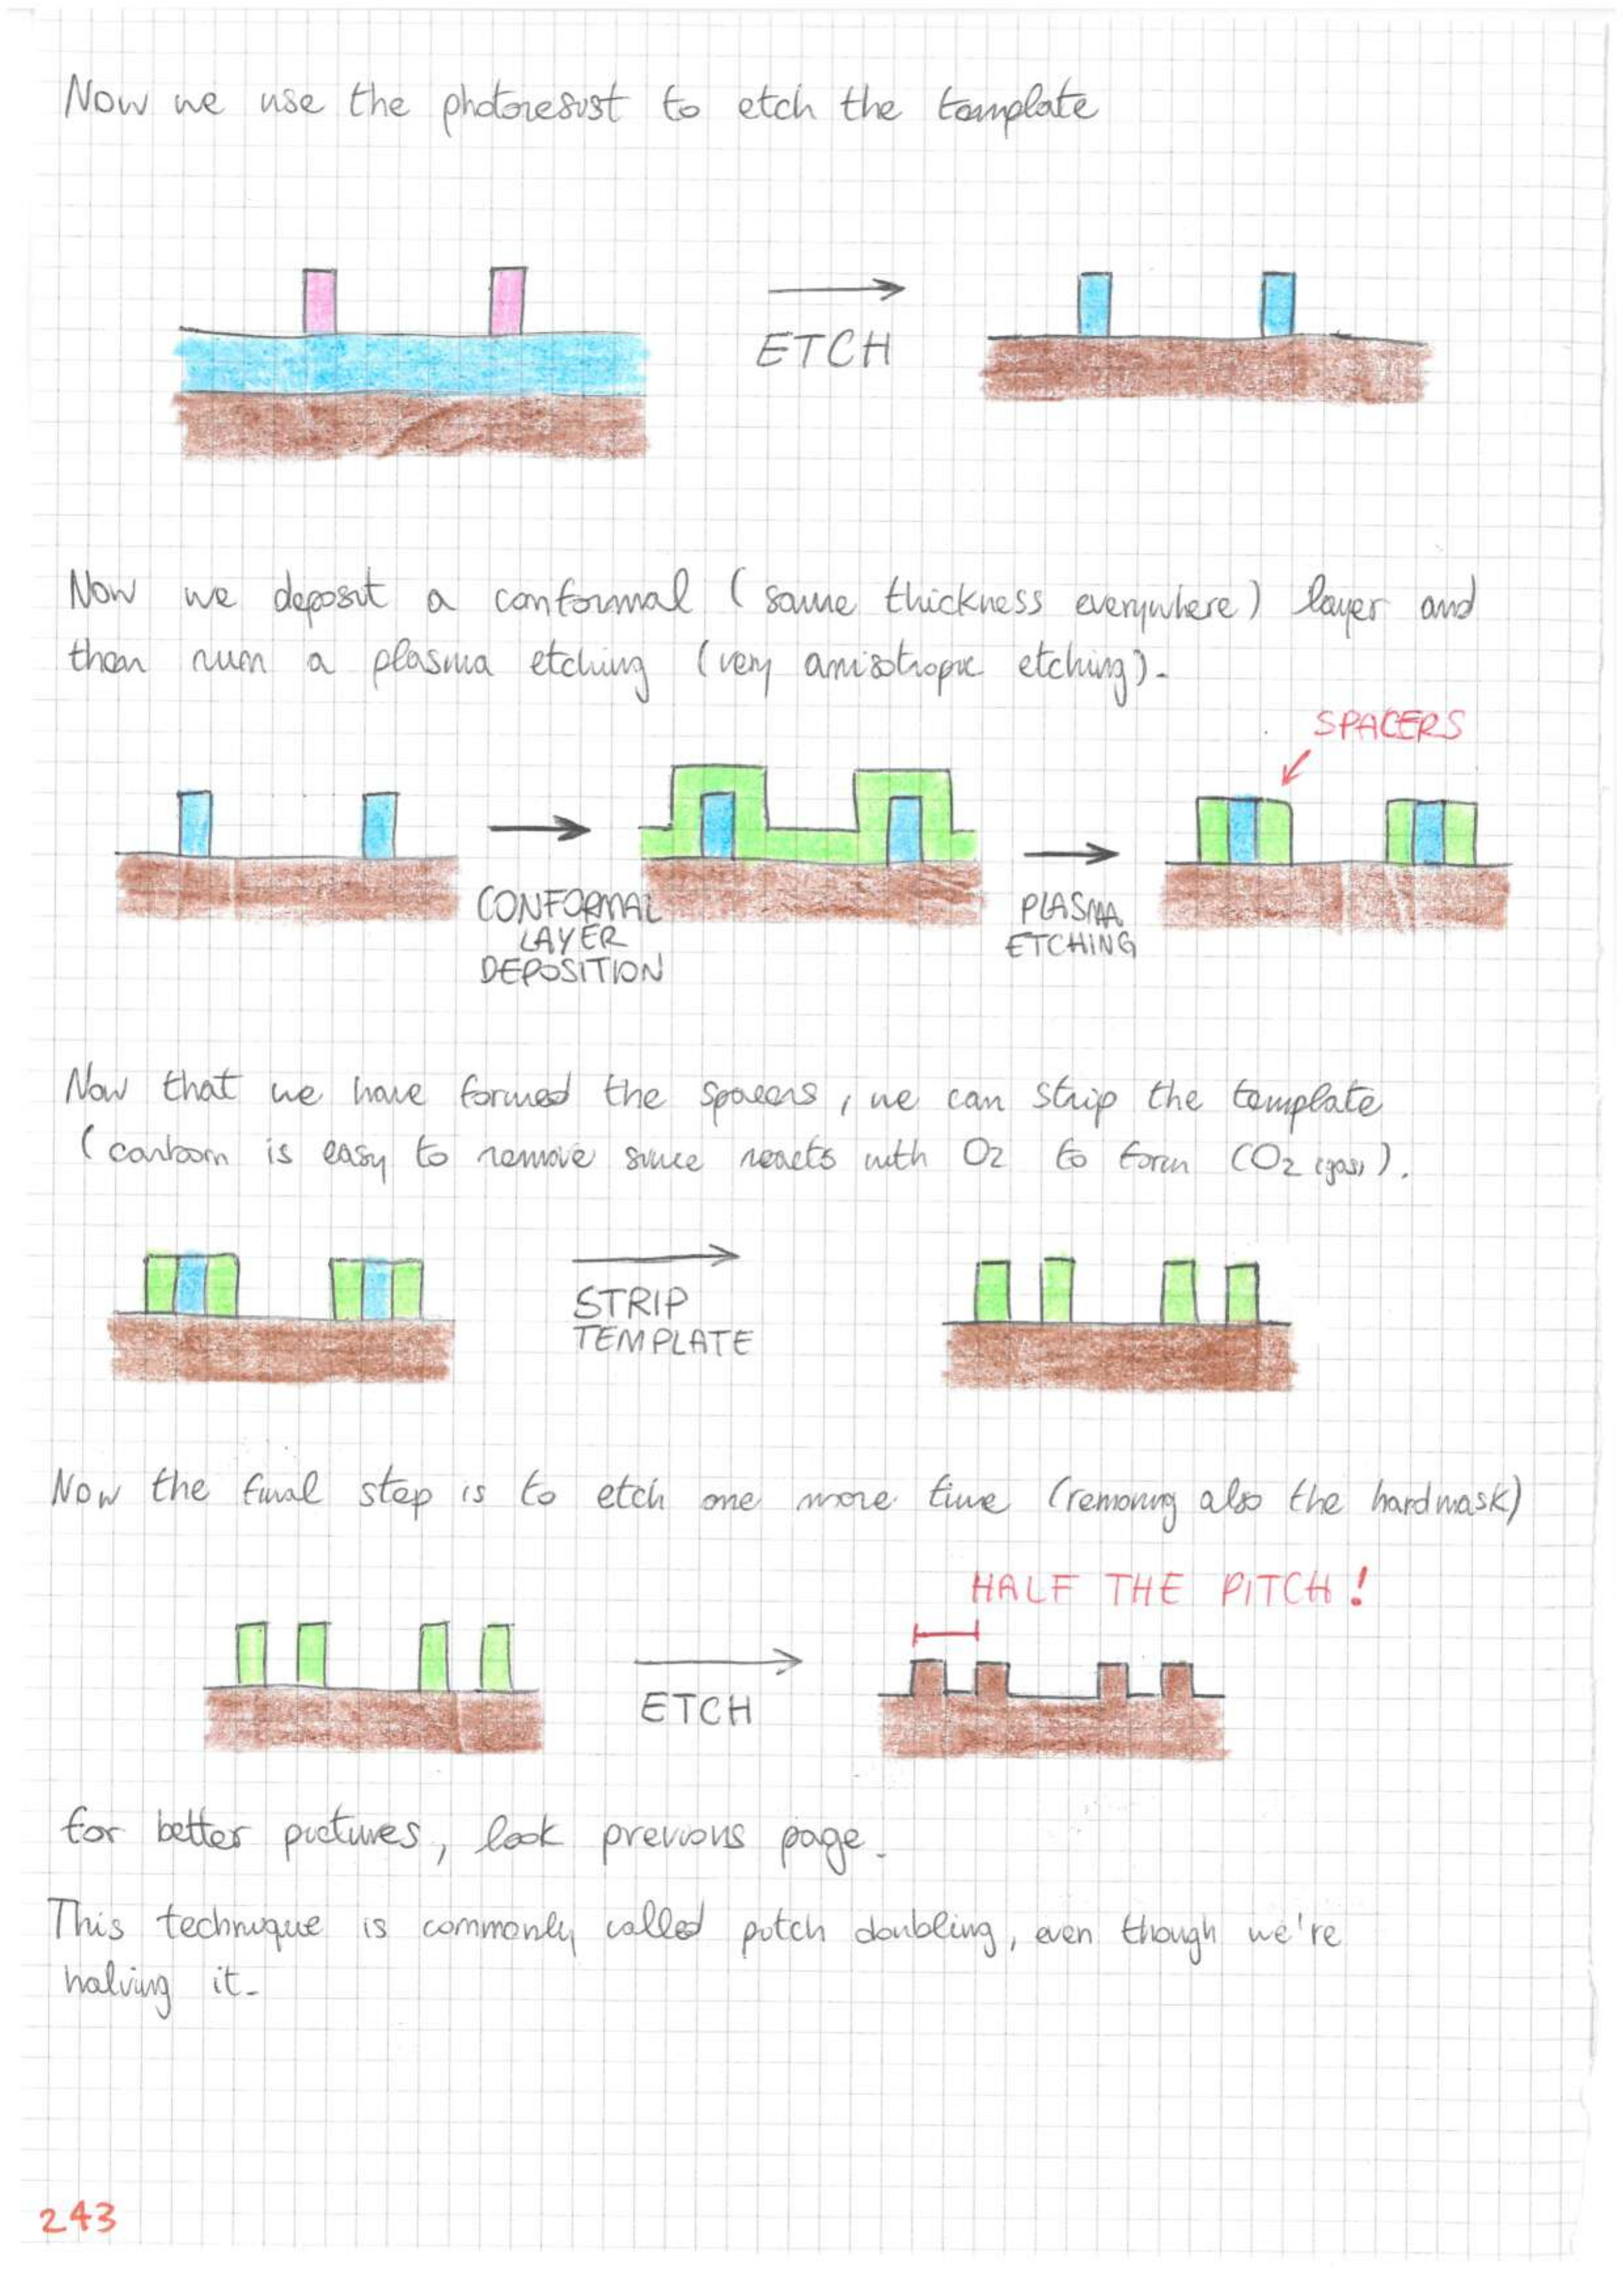 Now we use the photoresist to etch the template
ETCH
Now we deposit a conformal (same thickness everywhere) layer and
then run a plasma etching (very anisotropic etching).
SPACERS
CONFORMAL
LAYER
DEPOSITION
PLASMA
ETCHING
Now that we have formed the spacers, we can strip the template
(carbon is easy to remove since reacts with O2 to form CO2 (gas)).
STRIP
TEMPLATE
Now the final step is to etch one more time (removing also the hardmask)
HALF THE PITCH!
ETCH
for better pictures, look previous page.
This technique is commonly called pitch doubling, even though we're
halving it.
243